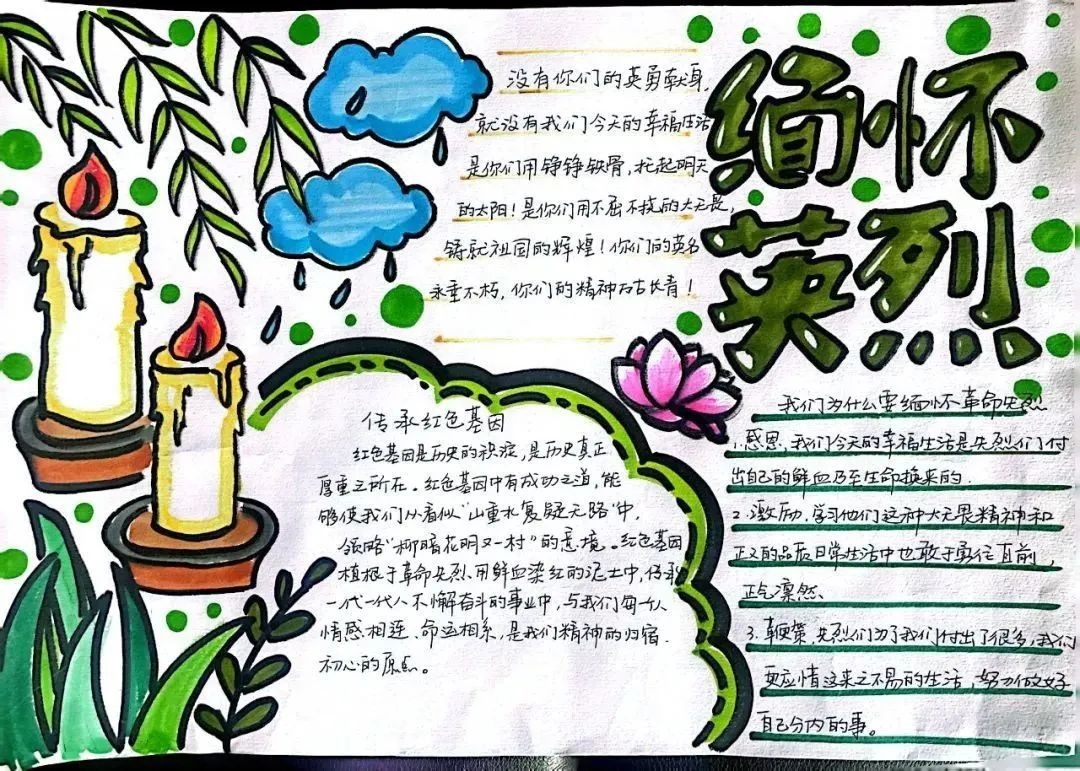 缅怀
英烈
没有你们的英勇献身,
就没有我们今天的幸福生活
是你们用铮铮铁骨,托起明天
的太阳!是你们用不屈不挠的大无畏,
铸就祖国的辉煌!你们的英名
永垂不朽,你们的精神万古长青!
传承红色基因
红色基因是历史的积淀,是历史真正
厚重之所在。红色基因中有成功之道,能
够使我们从看似"山重水复疑无路"中,
领略"柳暗花明又一村"的意境。红色基因
植根于革命先烈、用鲜血染红的泥土中,传承
一代一代人不懈奋斗的事业中,与我们每个人
情感相连、命运相系,是我们精神的归宿.
初心的原点。
我们为什么要缅怀革命先烈
1.感恩,我们今天的幸福生活是先烈们付
出自己的鲜血乃至生命换来的.
2.激励,学习他们这种大无畏精神和
正义的品质日常生活中也敢于勇往直前,
正气凛然、
3.鞭策 先烈们为了我们付出了很多,我们
更应惜这来之不易的生活,努力做好
自己分内的事。